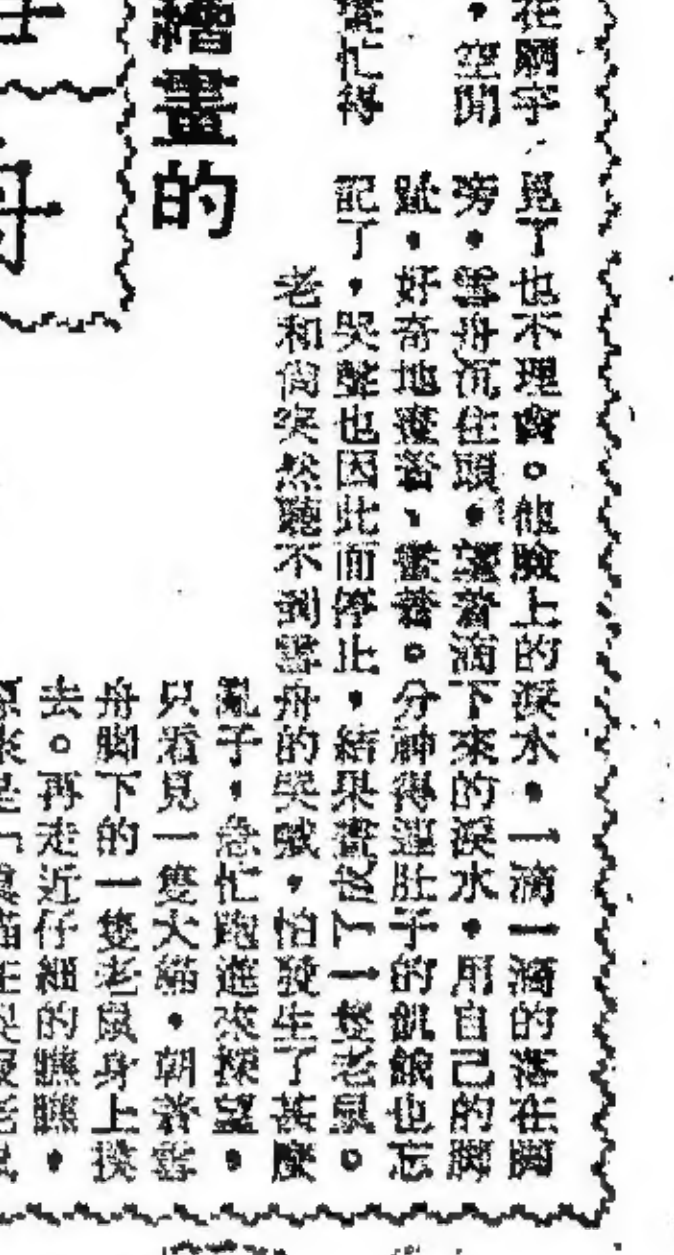 在腳字
覓了也不理會。他臉上的淚水，一滴一滴的落在腳
，空閒
旁，雪舟沉住頭，望著滴下來的淚水，用自己的腳
趾，好奇地畫著、畫著。分神得連肚子的飢餓也忘
忙得
記了，哭聲也因此而停止，結果畫成了一隻老鼠。
老和尚突然聽不到雪舟的哭喊，怕發生了甚麼
亂子，急忙跑進來探望，
只看見一隻大貓，朝著雪
舟腳下的一隻老鼠身上撲
去。再走近仔細的瞧瞧，
繪畫的
舟